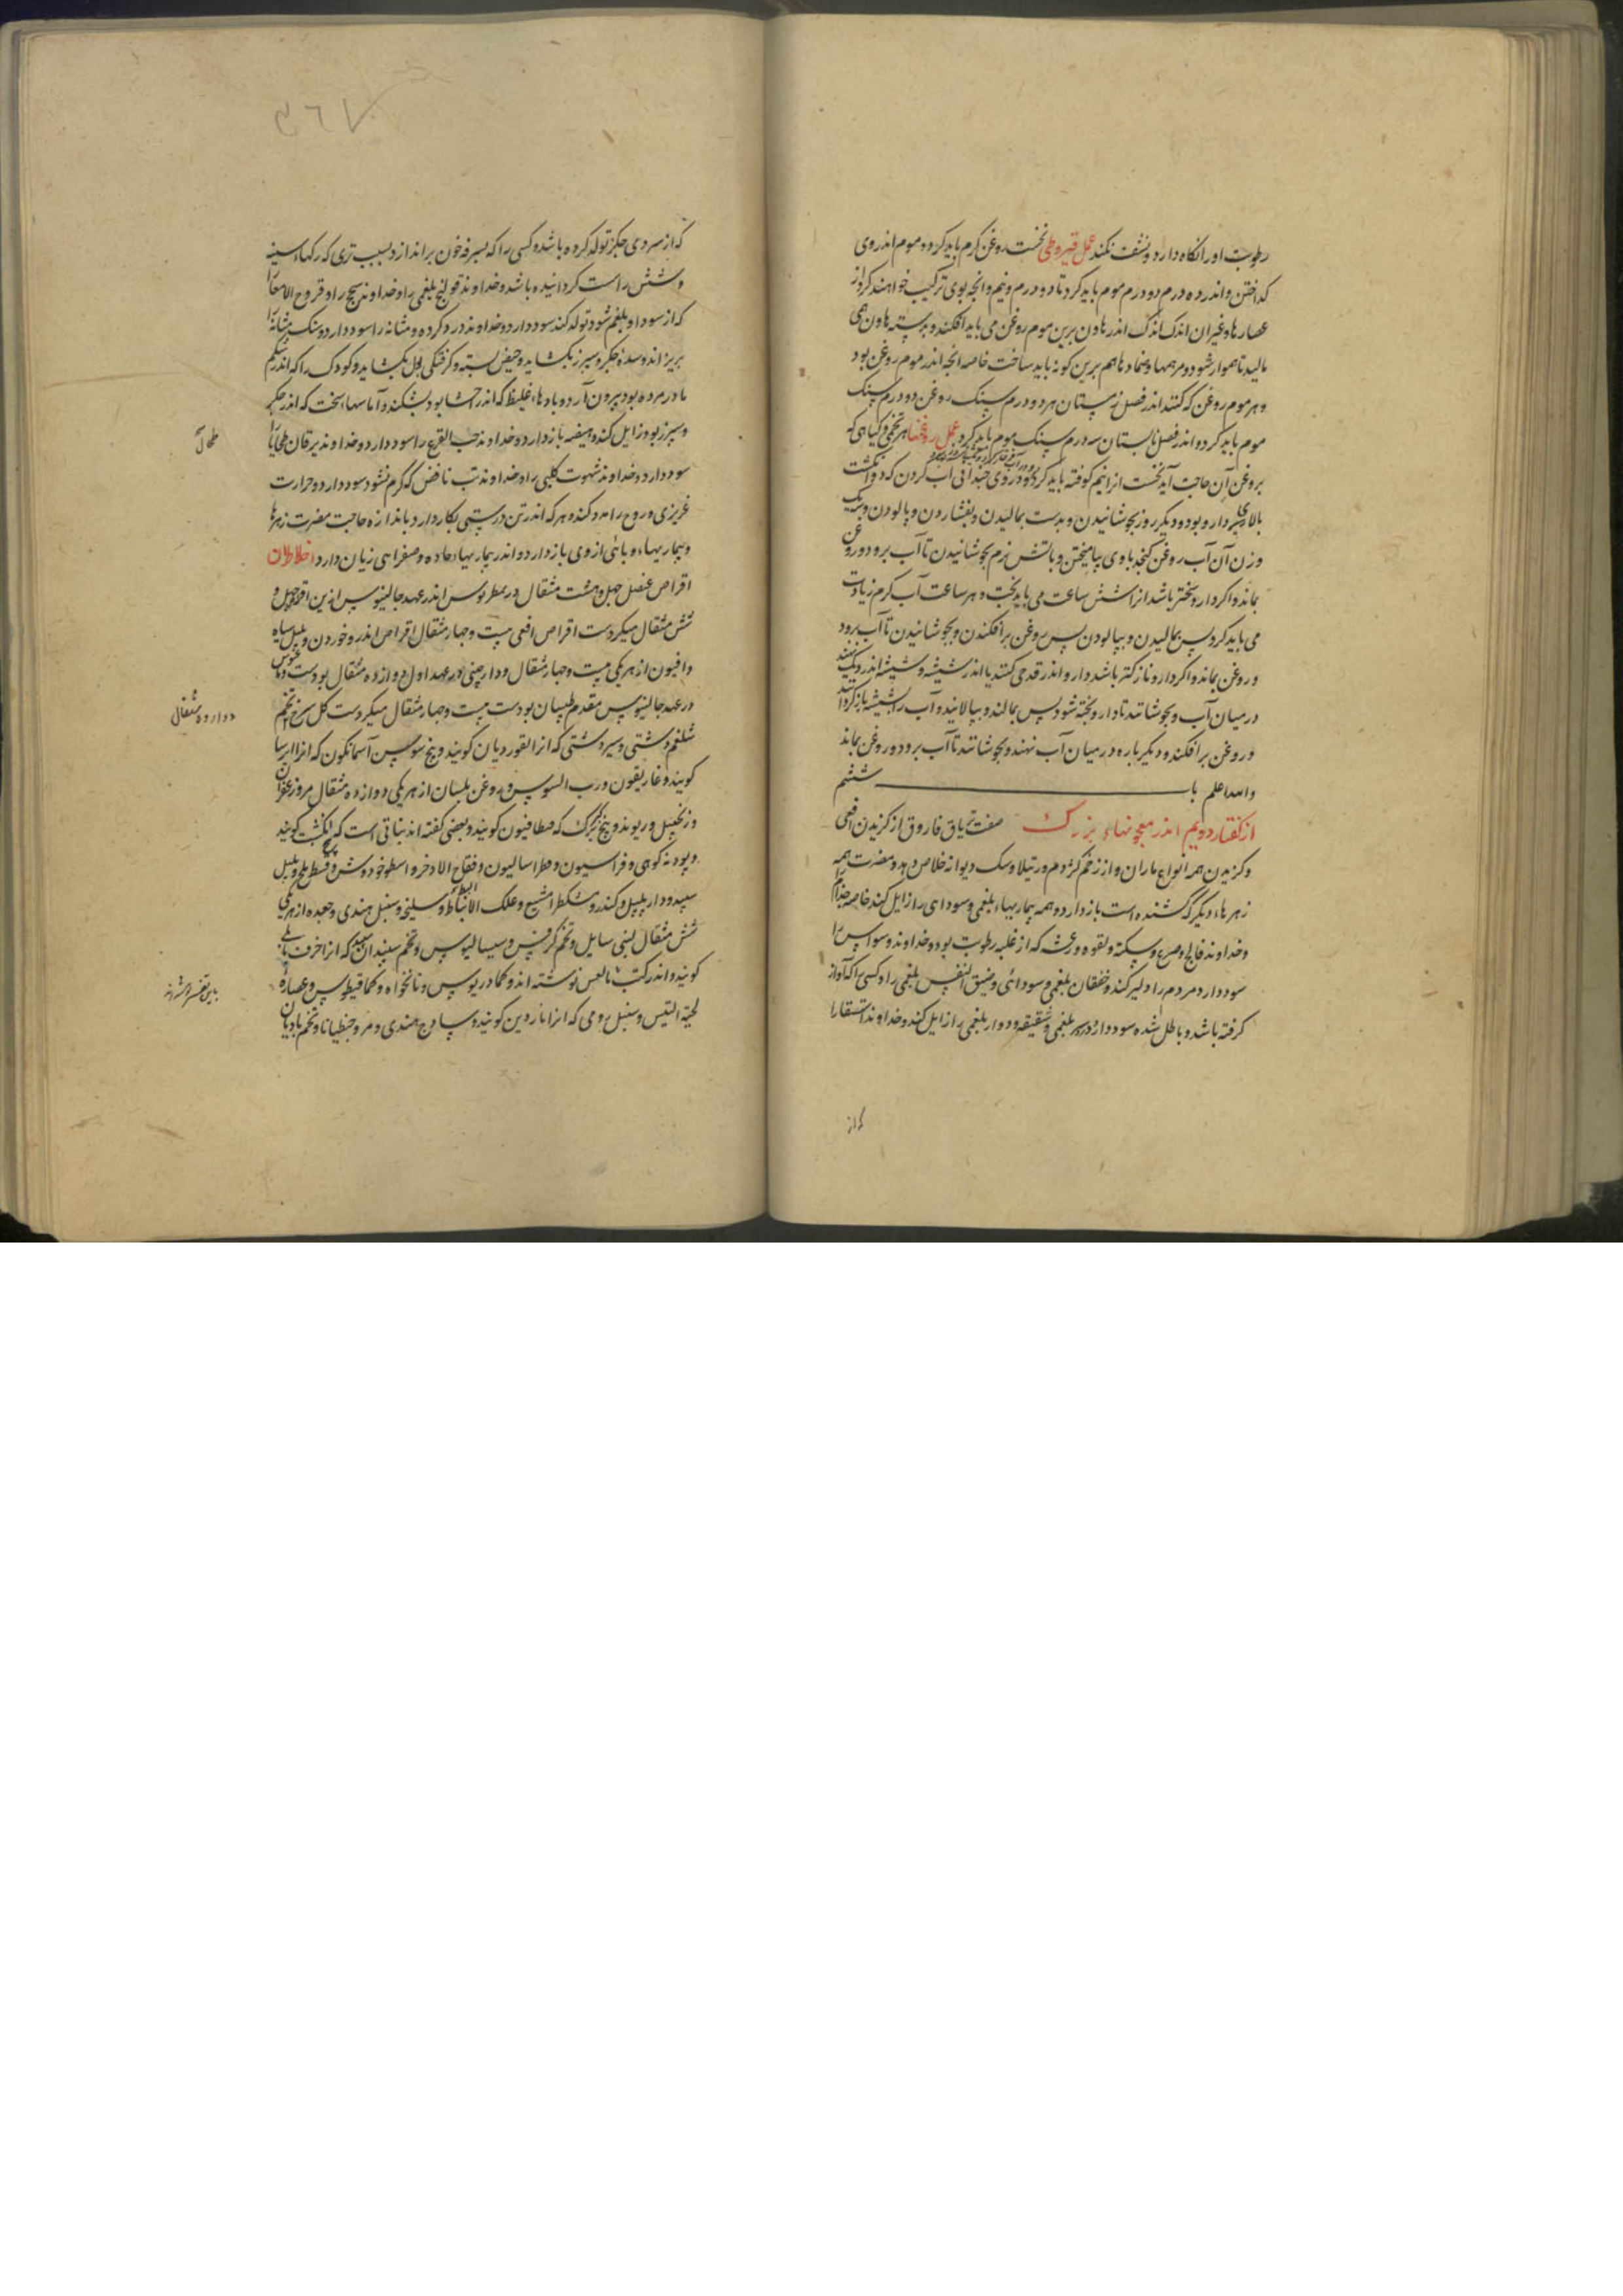 رطوبت اورا نکاه دارد و نشف نکند عمل قیروطی نخست روغن کرم باید کرد و موم اندر وی
کداختن و اندر ده درم دو درم موم باید کرد تا دو درم و نیم و انچه بوی ترکیب خواهند کرد از
عصارها و غیر ان اندک اندک اندر هاون برین موم روغن می باید افکند و بدسته هاون همی
مالید تا هموار شود و مرهمها و ضمادها هم برین کونه باید ساخت خاصه انچه اندر موم روغن بود
و هر موم روغن که کنند اندر فصل زمستان هر دو درم سنک روغن دو درم سنک
موم باید کرد و اندر فصل تابستان سه درم سنک موم باید کرد عمل روغنها هر تخمی و کیاهی که
بروغن آن حاجت آید نخست انرا نیم کوفته باید کرد و در روی چندانی اب کردن که دو انکشت
بالای دارو بود و دیکر روز بجوشانیدن و بدست بمالیدن و بفشاردن و پالودن و بیک
وزن آن آب روغن کنجد با وی بیامیختن و باتش نرم بجوشانیدن تا آب برود و روغن
بماند و اکر دارو سختر باشد انرا شش ساعت می باید پخت و هر ساعت آب کرم زیادت
می باید کرد پس بمالیدن و بپالودن پس روغن برافکندن و بجوشانیدن تا آب برود
و روغن بماند و اکر دارو نازکتر باشد دارو اندر قدحی کنند یا اندر شیشه و شیشه اندر دیک نهند
در میان آب و بجوشانند تا دارو پخته شود پس بمالند و بپالایند و آب را بشیشه باز کردانند
و روغن برافکند و دیکر باره در میان آب نهند و بجوشانند تا آب برود و روغن بماند
والله اعلم باب ششم
از کفتار دویم اندر معجونهاء بزرک صفت تریاق فاروق از کزیدن افعی
و کزیدن همه انواع ماران و از زخم کژدم و رتیلا و سک دیوانه خلاص دهد و مضرت همه
زهرهاء دیکر که کشنده است باز دارد و همه بیماریهاء بلغمی و سودای را زایل کند خاصه جذام را
و خداوند فالج و صرع و سکته و لقوه و رعشه که از غلبه رطوبت بود و خداوند وسواس را
سود دارد و مردم را دلیر کند و خفقان بلغمی و سودائی و ضیق النفس بلغمی را و کسی را که آواز
کرفته باشد و باطل شده سود دارد و درد سر بلغمی و شقیقه و دوار بلغمی را زایل کند و خداوند استسقا را
که از
که از سردی جکر تولد کرده باشد و کسی را که بسرفه خون براندازد بسبب تری که رکهاء سینه
و شش راست کردانیده باشد و خداوند قولنج بلغمی را و خداوند سحج را و قروح الامعا را
که از سودا و بلغم شور تولد کند سود دارد و خداوند درد کرده و مثانه را سود دارد و سنک مثانه را
بریزاند و سده جکر و سپرز بکشاید و حیض بسته و کرفتکی بول بکشاید و کودک را که اندر شکم
مادر مرده بود بیرون آرد و بادهاء غلیظ که اندر احشا بود بشکند و آماسهاء سخت که اندر جکر
و سپرز بود زایل کند و هیضه باز دارد و خداوند حب القرع را سود دارد و خداوند یرقان طحالی را
طحال
سود دارد و خداوند شهوت کلبی را و خداوند تب نافض که کرم نشود سود دارد و حرارت
غریزی و روح را مدد کند و هر که اندر تن درستی بکار دارد باندازه حاجت مضرت زهرها
و بیماریهاء وبائی از وی باز دارد و اندر بیماریهاء حاده و صفرائی زیان دارد اخلاط آن
اقراص عنصل چهل و هشت مثقال اندر عهد جالینوس ازین اقراص چهل و
شش مثقال میکردست اقراص افعی بیست و چهار مثقال اقراص اندروخوردن و پلپل سیاه
و افیون از هر یکی بیست و چهار مثقال و دارچینی در عهد اول دوازده مثقال بودست
دوازده مثقال
در عهد جالینوس مقدم طبیبان بودست بیست و چهار مثقال میکردست کل سرخ تخم
شلغم دشتی و سیر دشتی که انرا سقوردیون کویند و بیخ سوسن آسمانکون که انرا ایرسا
کویند و غاریقون و رب السوس و روغن بلسان از هر یکی دوازده مثقال مر و زعفران
و زنجبیل و ریوند و بیخ که فنطافلیون کویند و بعضی کفته اند نباتی است که پنج انکشت کویند
و پودنه کوهی و فراسیون و فطراسالیون و فقاح الاذخر و اسطوخودوس و قسط تلخ و پلپل
سپید و دارپلپل و کندر و مشکطرامشیع و علک الانباط و سلیخه و سنبل هندی و جعده از هر یکی
شش مثقال لبنی سایل و تخم کرفس و سیسالیوس و تخم سپندان سپید که انرا حرف بابلی
کویند و اندر کتب ثالیس نوشته اند و کمادریوس و نانخواه و کمافیطوس و عصاره
لحیة التیس و سنبل رومی که انرا ناردین کویند و ساذج هندی و مر و جنطیانا و تخم بادیان